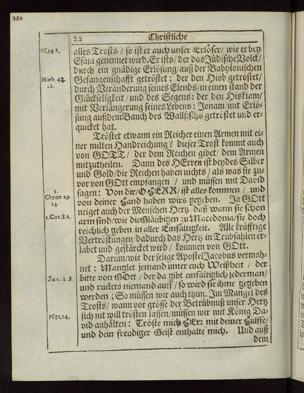 350
22 Christliche
alles Trosts / so ist er auch unser Erlöser / wie er bey
Esaia genennet wird. Er ists / der das Jüdische Volck /
durch ein gnädige Erlösung / auß der Babylonischen
Gefangenschafft getröstet: der den Hiob getröstet /
durch Veränderung seines Elends / in einen stand der
Glückseligkeit / und des Segens: der den Hiskiam /
mit Verlängerung seines Lebens: Jonam mit Erlö-
sung auß dem Bauch des Wallfisches getröstet und er-
quicket hat.
Tröstet etwann ein Reicher einen Armen mit ei-
ner milten Handreichung? dieser Trost kommt auch
von GOTT / der dem Reichen gibet / dem Armen
mitzutheilen. Dann des HErren ist beydes Silber
und Gold / die Reichen haben nichts / als was sie zu-
vor von GOtt empfangen / und müssen mit David
sagen: Von dir / HERR / ist alles kommen / und
von deiner Hand haben wirs gegeben. Ja GOtt
neiget auch der Menschen Hertz / daß wann sie schon
arm sind / wie die Gläubigen zu Macedonia / sie doch
reichlich geben in aller Einfältigkeit. Alle kräfftige
Vertröstungen / dadurch das Hertz in Trübsahlen er-
labet und gestärcket wird / kommen von GOtt.
Darum / wie der selige Apostel Jacobus vermah-
net: Manglet jemand unter euch Weißheit / der
bitte von GOtt / der da gibt einfältiglich jederman /
und rucket es niemand auff / so wird sie ihme gegeben
werden; So müssen wir auch thun. Im Mangel des
Trosts / wann vor grosse der Betrübnuß unser Hertz
sich nit will trösten lassen / müssen wir mit König Da-
vid anhalten: Tröste mich HErr mit deiner Hülffe /
und dein freudiger Geist enthalte mich. Und auß
dem
Hiob 42.
12.
1.
Chron 29.
14.
2. Cor. 8. 2.
Jac. 1. 5.
Ps. 51. 14.